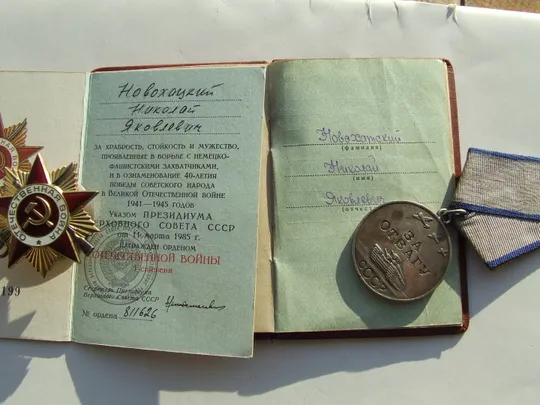 Новохоцкий
Николай
Яковлевич
ЗА ХРАБРОСТЬ, СТОЙКОСТЬ И МУЖЕСТВО,
ПРОЯВЛЕННЫЕ В БОРЬБЕ С НЕМЕЦКО-
ФАШИСТСКИМИ ЗАХВАТЧИКАМИ,
И В ОЗНАМЕНОВАНИЕ 40-ЛЕТИЯ
ПОБЕДЫ СОВЕТСКОГО НАРОДА
В ВЕЛИКОЙ ОТЕЧЕСТВЕННОЙ ВОЙНЕ
1941—1945 ГОДОВ
Указом ПРЕЗИДИУМА
ВЕРХОВНОГО СОВЕТА СССР
от 11 марта 1985 г.
НАГРАЖДЕН ОРДЕНОМ
ОТЕЧЕСТВЕННОЙ ВОЙНЫ
I степени
Секретарь Президиума
Верховного Совета СССР
№ ордена 811626
Новохатский
(фамилия)
Николай
(имя)
Яковлевич
(отчество)
ЗА
ОТВАГУ
СССР
ОТЕЧЕСТВЕННАЯ ВОЙНА
199